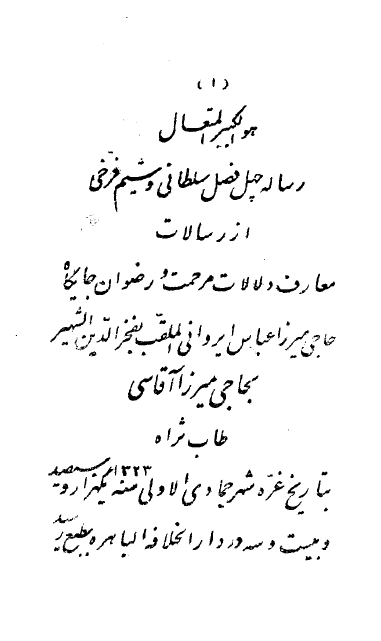 (۱)
هو الکبیر المتعال
رساله چهل فصل سلطانی و شیم فرخی
از رسالات
معارف دلالات مرحمت و رضوان جایگاه
حاجی میرزا عباس ایروانی الملقب بفخر الدین الشهیر
بحاجی میرزا آقاسی
طاب ثراه
بتاریخ غره شهر جمادی الاولی سنه ۱۳۲۳ یکهزار و سیصد
و بیست و سه در دار الخلافه الباهره بطبع رسید